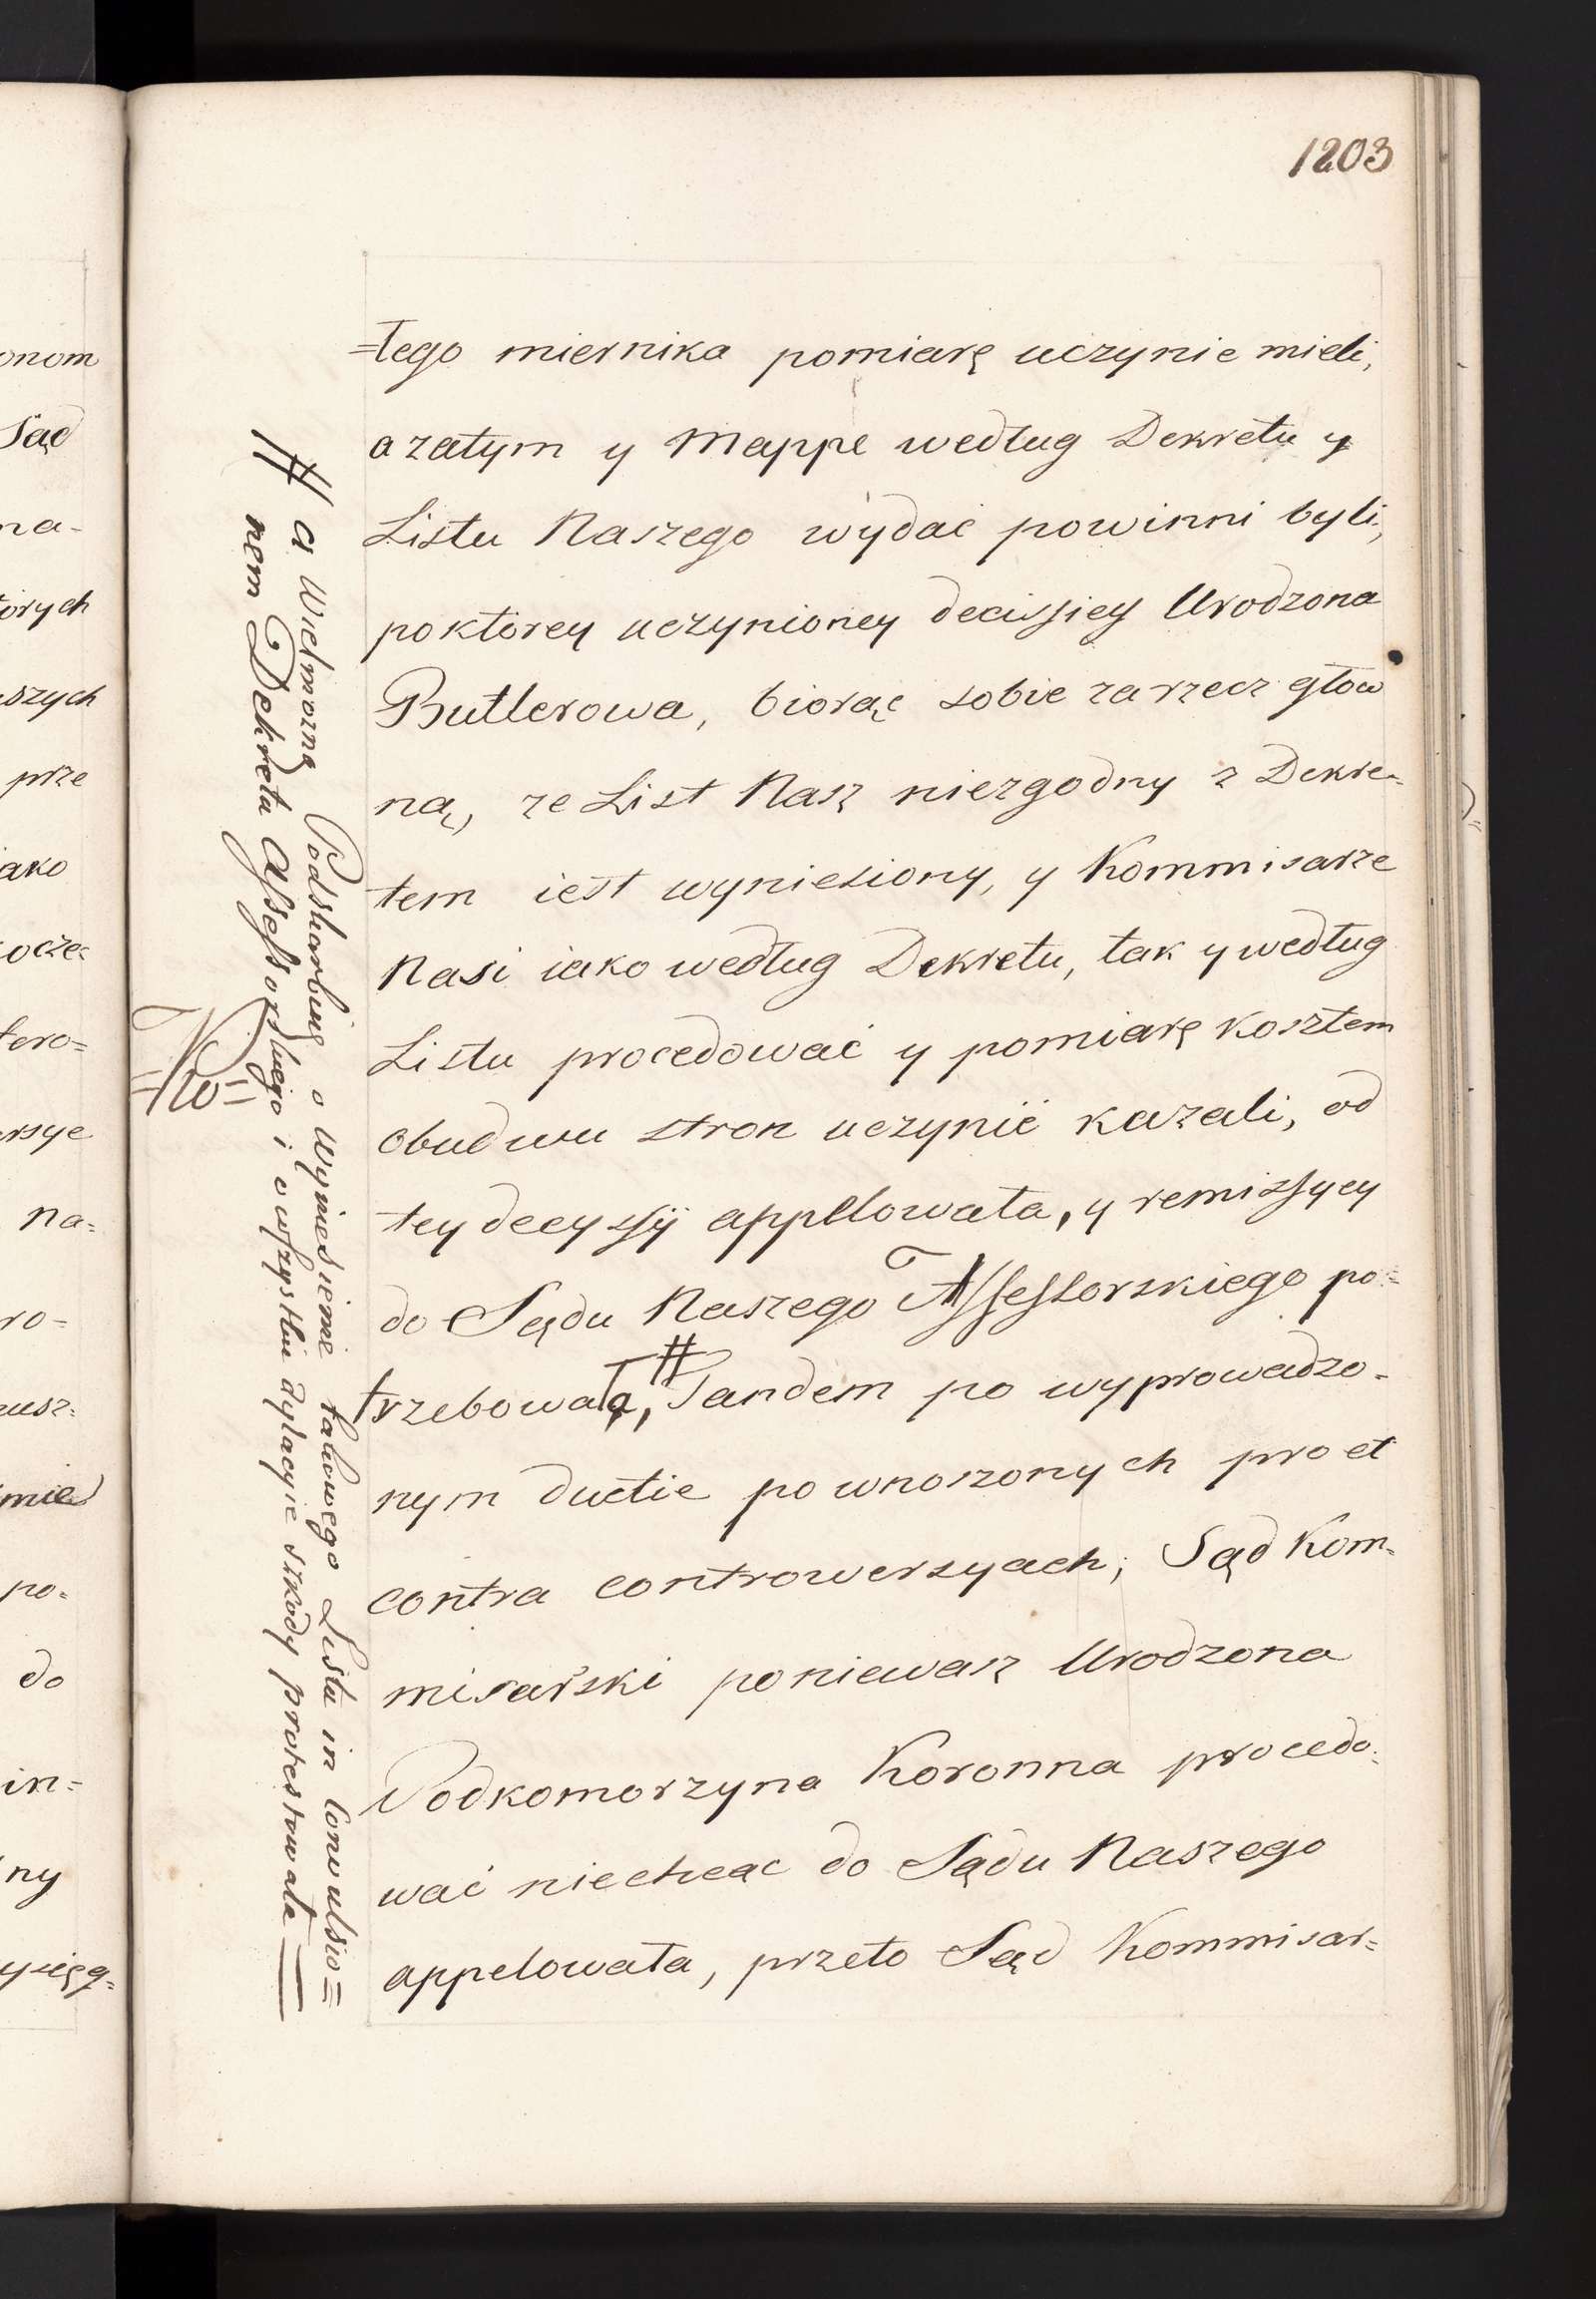 1203
=łego miernika pomiarę uczynic mieli,
azatym y Mappe według Dekretu y
Listu Naszego wydać powinni byli,
poktorey uczynioney decissiey Urodzona
Butlerowa, biorąc sobie zarzecz głow
ną, ze List Nasz niezgodny z Dekre=
tem iest wyniesiony, y Kommisarze
Nasi iako według Dekretu, tak y według
Listu procedować y pomiarę kosztem
obudwu stron uczynić kazali, od
tey decyssÿ appellowała, y remissyey
do Sądu Naszego Assessorskiego po=
trzebowała, # Tandem po wyprowadzo=
nym ductie pownoszonych pro et
contra controwersyach; Sąd Kom=
misarski poniewasz Urodzona
Podkomorzyna Koronna procedo=
wać niechcąc do Sądu Naszego
appelowała, przeto Sąd Kommisar=
# a Wielmozną Podskarbinę o wyniesienie takowego Listu in Convulsio=
nem Dekreta Assessorskiego i o wszystkie dylacyie szkody protestowała
onom
Sąd
na-
torych
szych
prze
iako
ocze=
tero=
ersye
na=
ro=
usz=
mie
po=
do
in=
ny